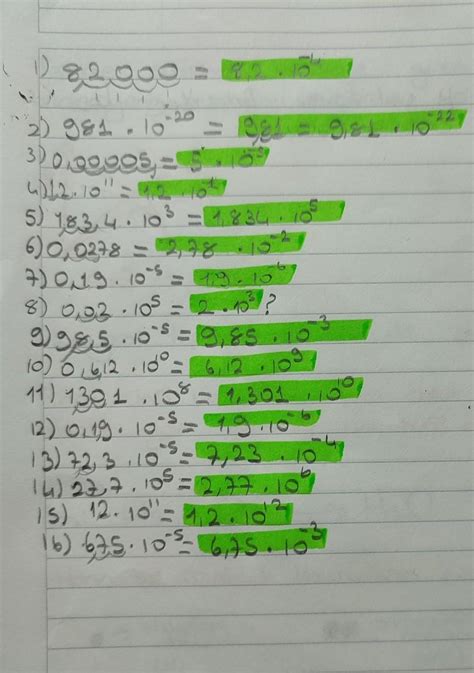 1) 8,2,000 = 8,2 . 10⁻⁴
2) 981 . 10⁻²⁰ = 9,81 = 9,81 . 10⁻²²
3) 0,00005, = 5 . 10⁻⁵
4) 12 . 10¹¹ = 1,2 . 10⁻¹
5) 183,4 . 10³ = 1,834 . 10⁵
6) 0,0278 = 2,78 . 10⁻²
7) 0,19 . 10⁻⁵ = 1,9 . 10⁻⁶
8) 0,03 . 10⁵ = 2 . 10³ ?
9) 985 . 10⁻⁵ = 9,85 . 10⁻³
10) 0,6,12 . 10¹⁰ = 6,12 . 10⁹
11) 1,301 . 10⁸ = 1,301 . 10¹⁰
12) 0,19 . 10⁻⁵ = 1,9 . 10⁻⁶
13) 72,3 . 10⁻⁵ = 7,23 . 10⁻⁴
14) 27,7 . 10⁵ = 2,77 . 10⁶
15) 12 . 10¹¹ = 1,2 . 10¹²
16) 6,75 . 10⁻⁵ = 6,75 . 10⁻³